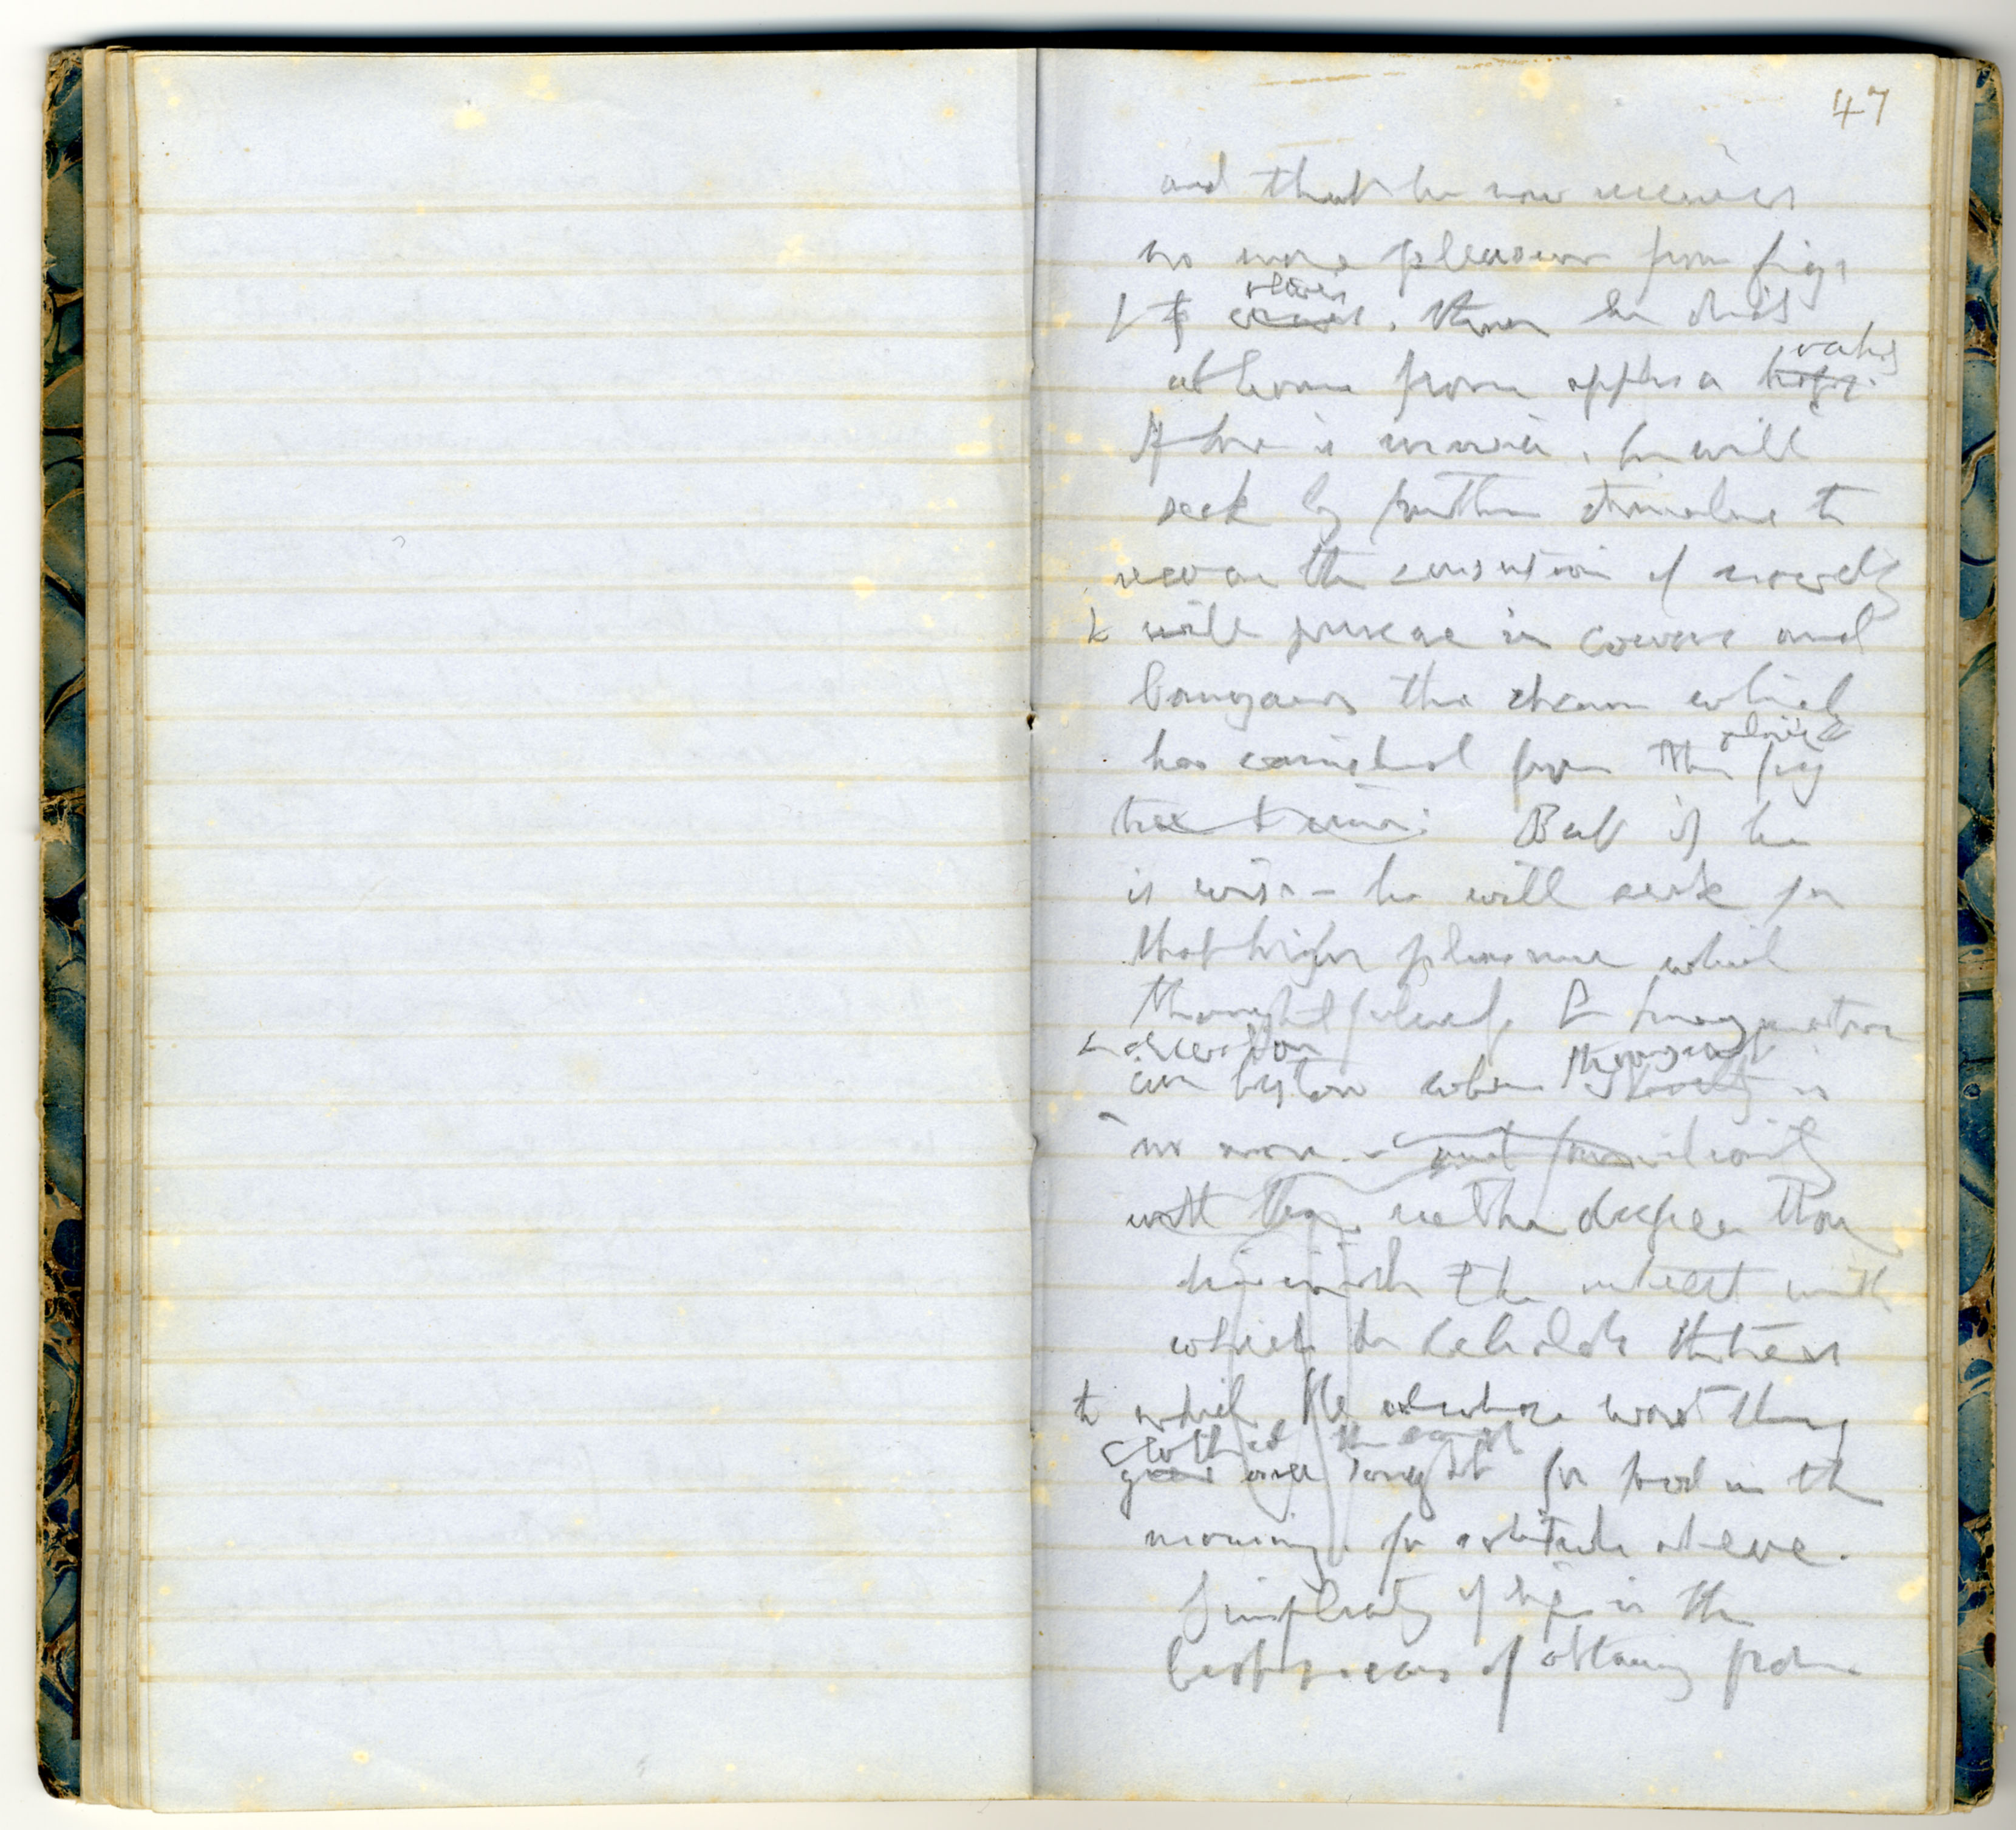 47
and that he now receives
no more pleasure from figs
& olives vines. than he did
at home from apples & oaks hops.
If he is unwise, he will
seek by further stimulus to
recover the sensation of novelty
& will pursue in and
banyans the charm which
has vanished from the olive & fig
tree & vine: But if he
is wise - he will seek for
that higher pleasure which
thoughtfulness & imagination
& association
can bestow when the novelty is
no more. - and familiarity
with them rather deepen than
diminish the interest with
which he beholds the trees
to which the
clothed the
for food in the
morning. for solitude at eve.
Simplicity of life is the
best means of obtaining